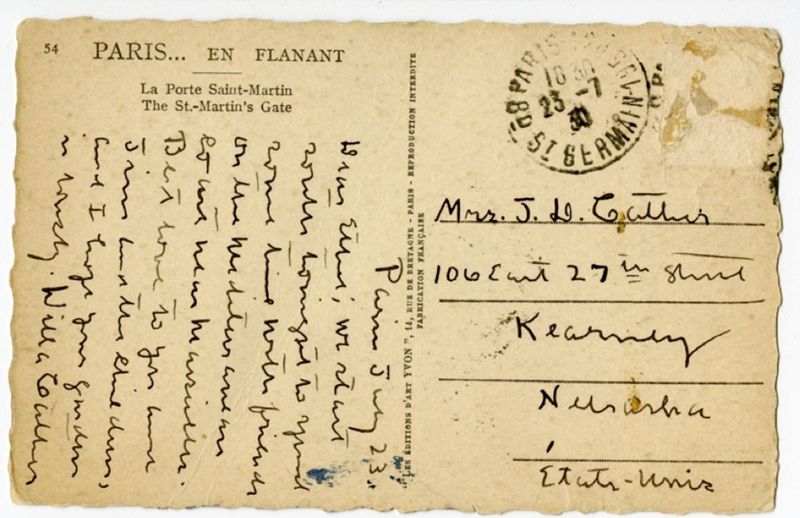 54
PARIS... EN FLANANT
La Porte Saint-Martin
The St.-Martin's Gate
LES EDITIONS D'ART YVON", 14, RUE DE BRETAGNE - PARIS - REPRODUCTION INTERDITE
FABRICATION FRANÇAISE
18 30
23 -7
30
ST GERMAIN
Paris July 23.
Dear Ethel; we start
south tonight to spend
some time with friends
on the Mediterranean
coast near Marseilles.
Best love to you and
Jim and the children,
and I hope your garden
is lovely. Willa Cather
Mrs. J. D. Cather
106 East 27th Street
Kearney
Nebraska
États-Unis